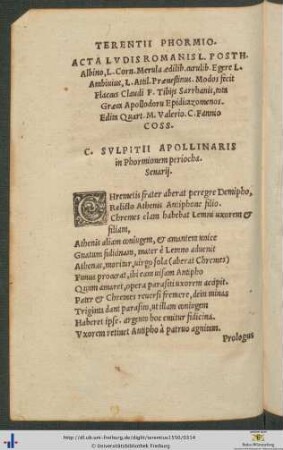 TERENTII PHORMIO.
ACTA LVDIS ROMANIS L. POSTH.
Albino, L. Corn. Merula ædilib. curulib. Egere L.
Ambiuius, L. Attil. Prænestinus. Modos fecit
Flaccus Claudi F. Tibijs Sarrhanis, tota
Græca Apollodoru Epidicazomenos.
Edita Quart. M. Valerio. C. Fannio
COSS.
C. SVLPITII APOLLINARIS
in Phormionem periocha.
Senarij.
CHremetis frater aberat peregre Demipho,
Relicto Athenis Antiphone filio.
Chremes clam habebat Lemni uxorem &
filiam,
Athenis aliam coniugem, & amantem unice
Gnatum fidicinam, mater è Lemno aduenit
Athenas, moritur, uirgo sola (aberat Chremes)
Funus procurat, ibi eam uisam Antipho
Quum amaret, opera parasiti uxorem accipit.
Pater & Chremes reuersi fremere, dein minas
Triginta dant parasito, ut illam coniugem
Haberet ipse. argento hoc emitur fidicina.
Vxorem retinet Antipho à patruo agnitam.
Prologus
http://dl.ub.uni-freiburg.de/diglit/terentius1550/0314
© Universitätsbibliothek Freiburg